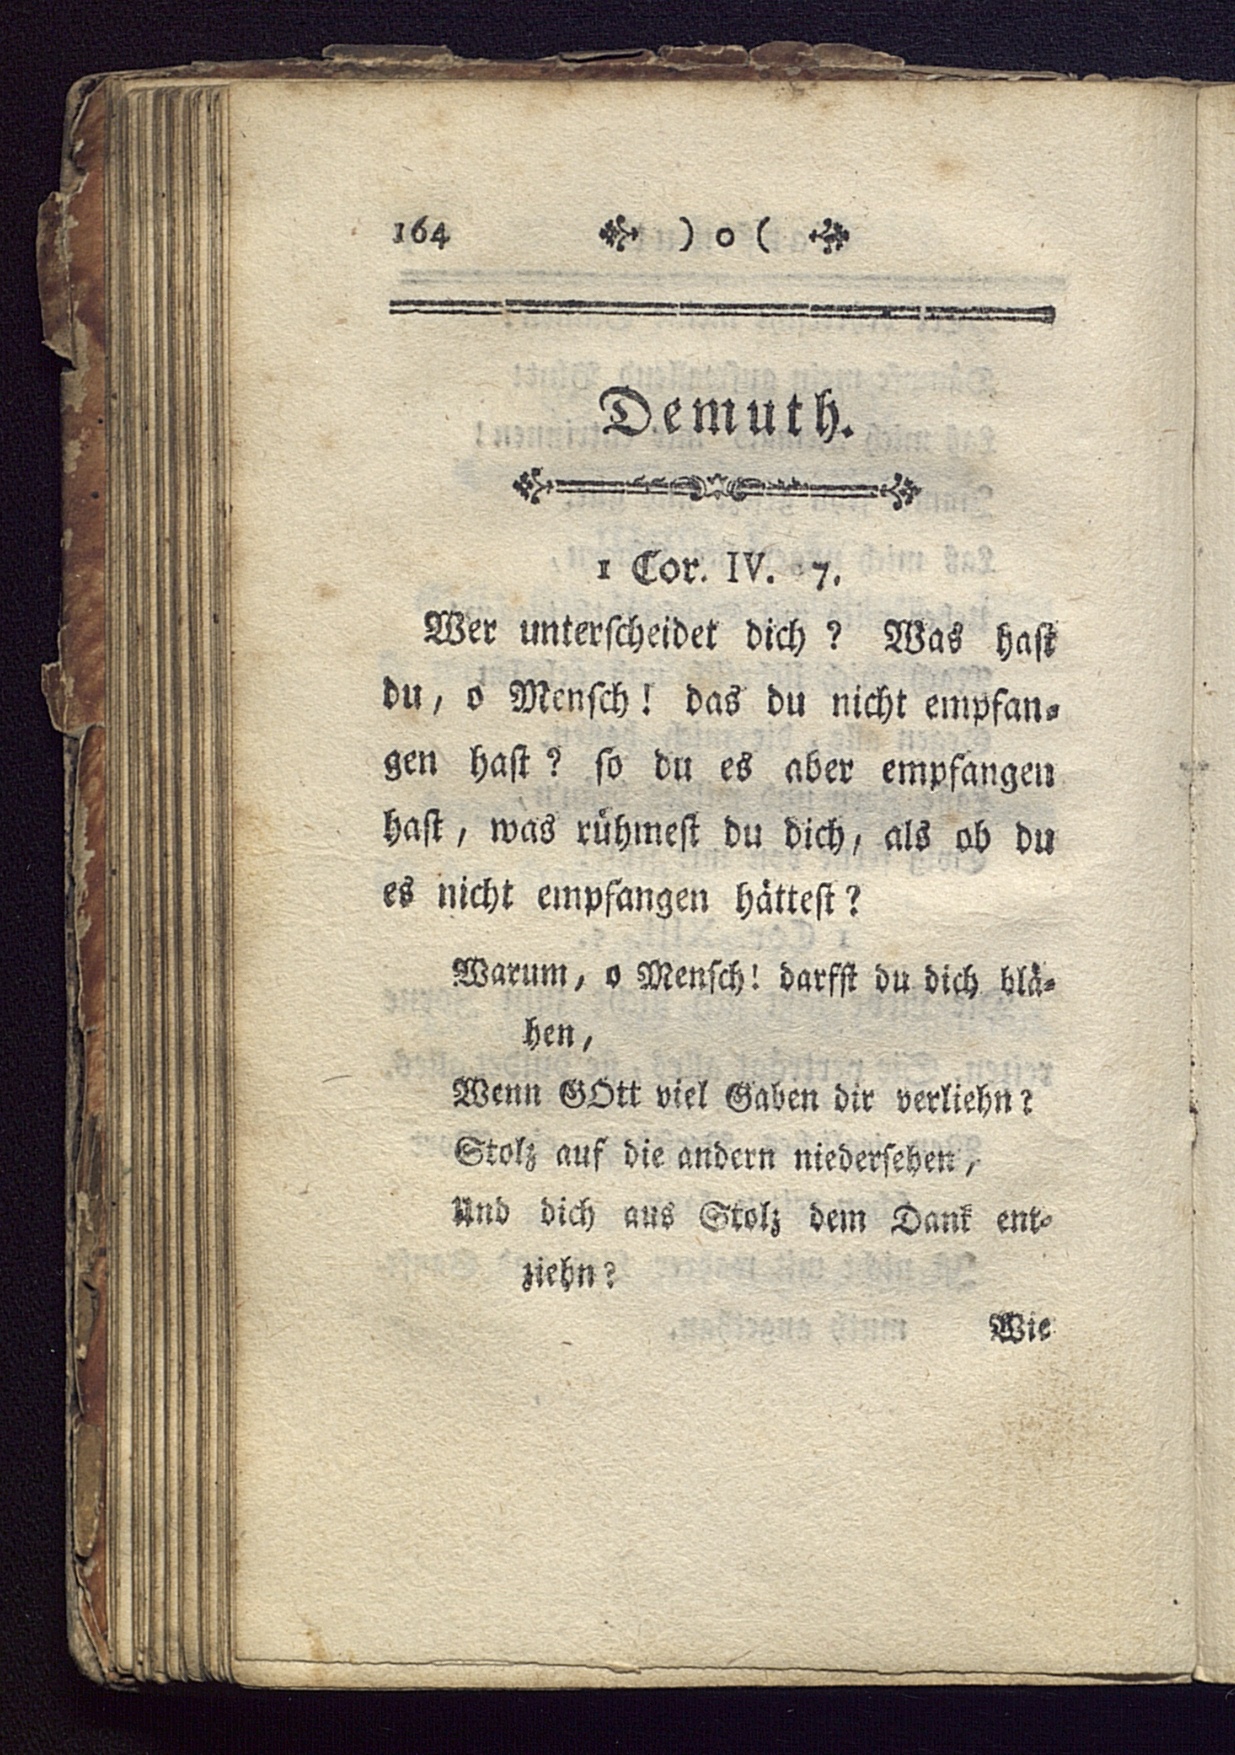 164 ) o (
Demuth.
1 Cor. IV. 7.
Wer unterſcheidet dich ? Was haſt
du, o Menſch! das du nicht empfan⸗
gen haſt ? ſo du es aber empfangen
haſt, was rühmeſt du dich, als ob du
es nicht empfangen hätteſt?
Warum, o Menſch! darfſt du dich blä⸗
hen,
Wenn GOtt viel Gaben dir verliehn?
Stolz auf die andern niederſehen,
Und dich aus Stolz dem Dank ent⸗
ziehn?
Wie